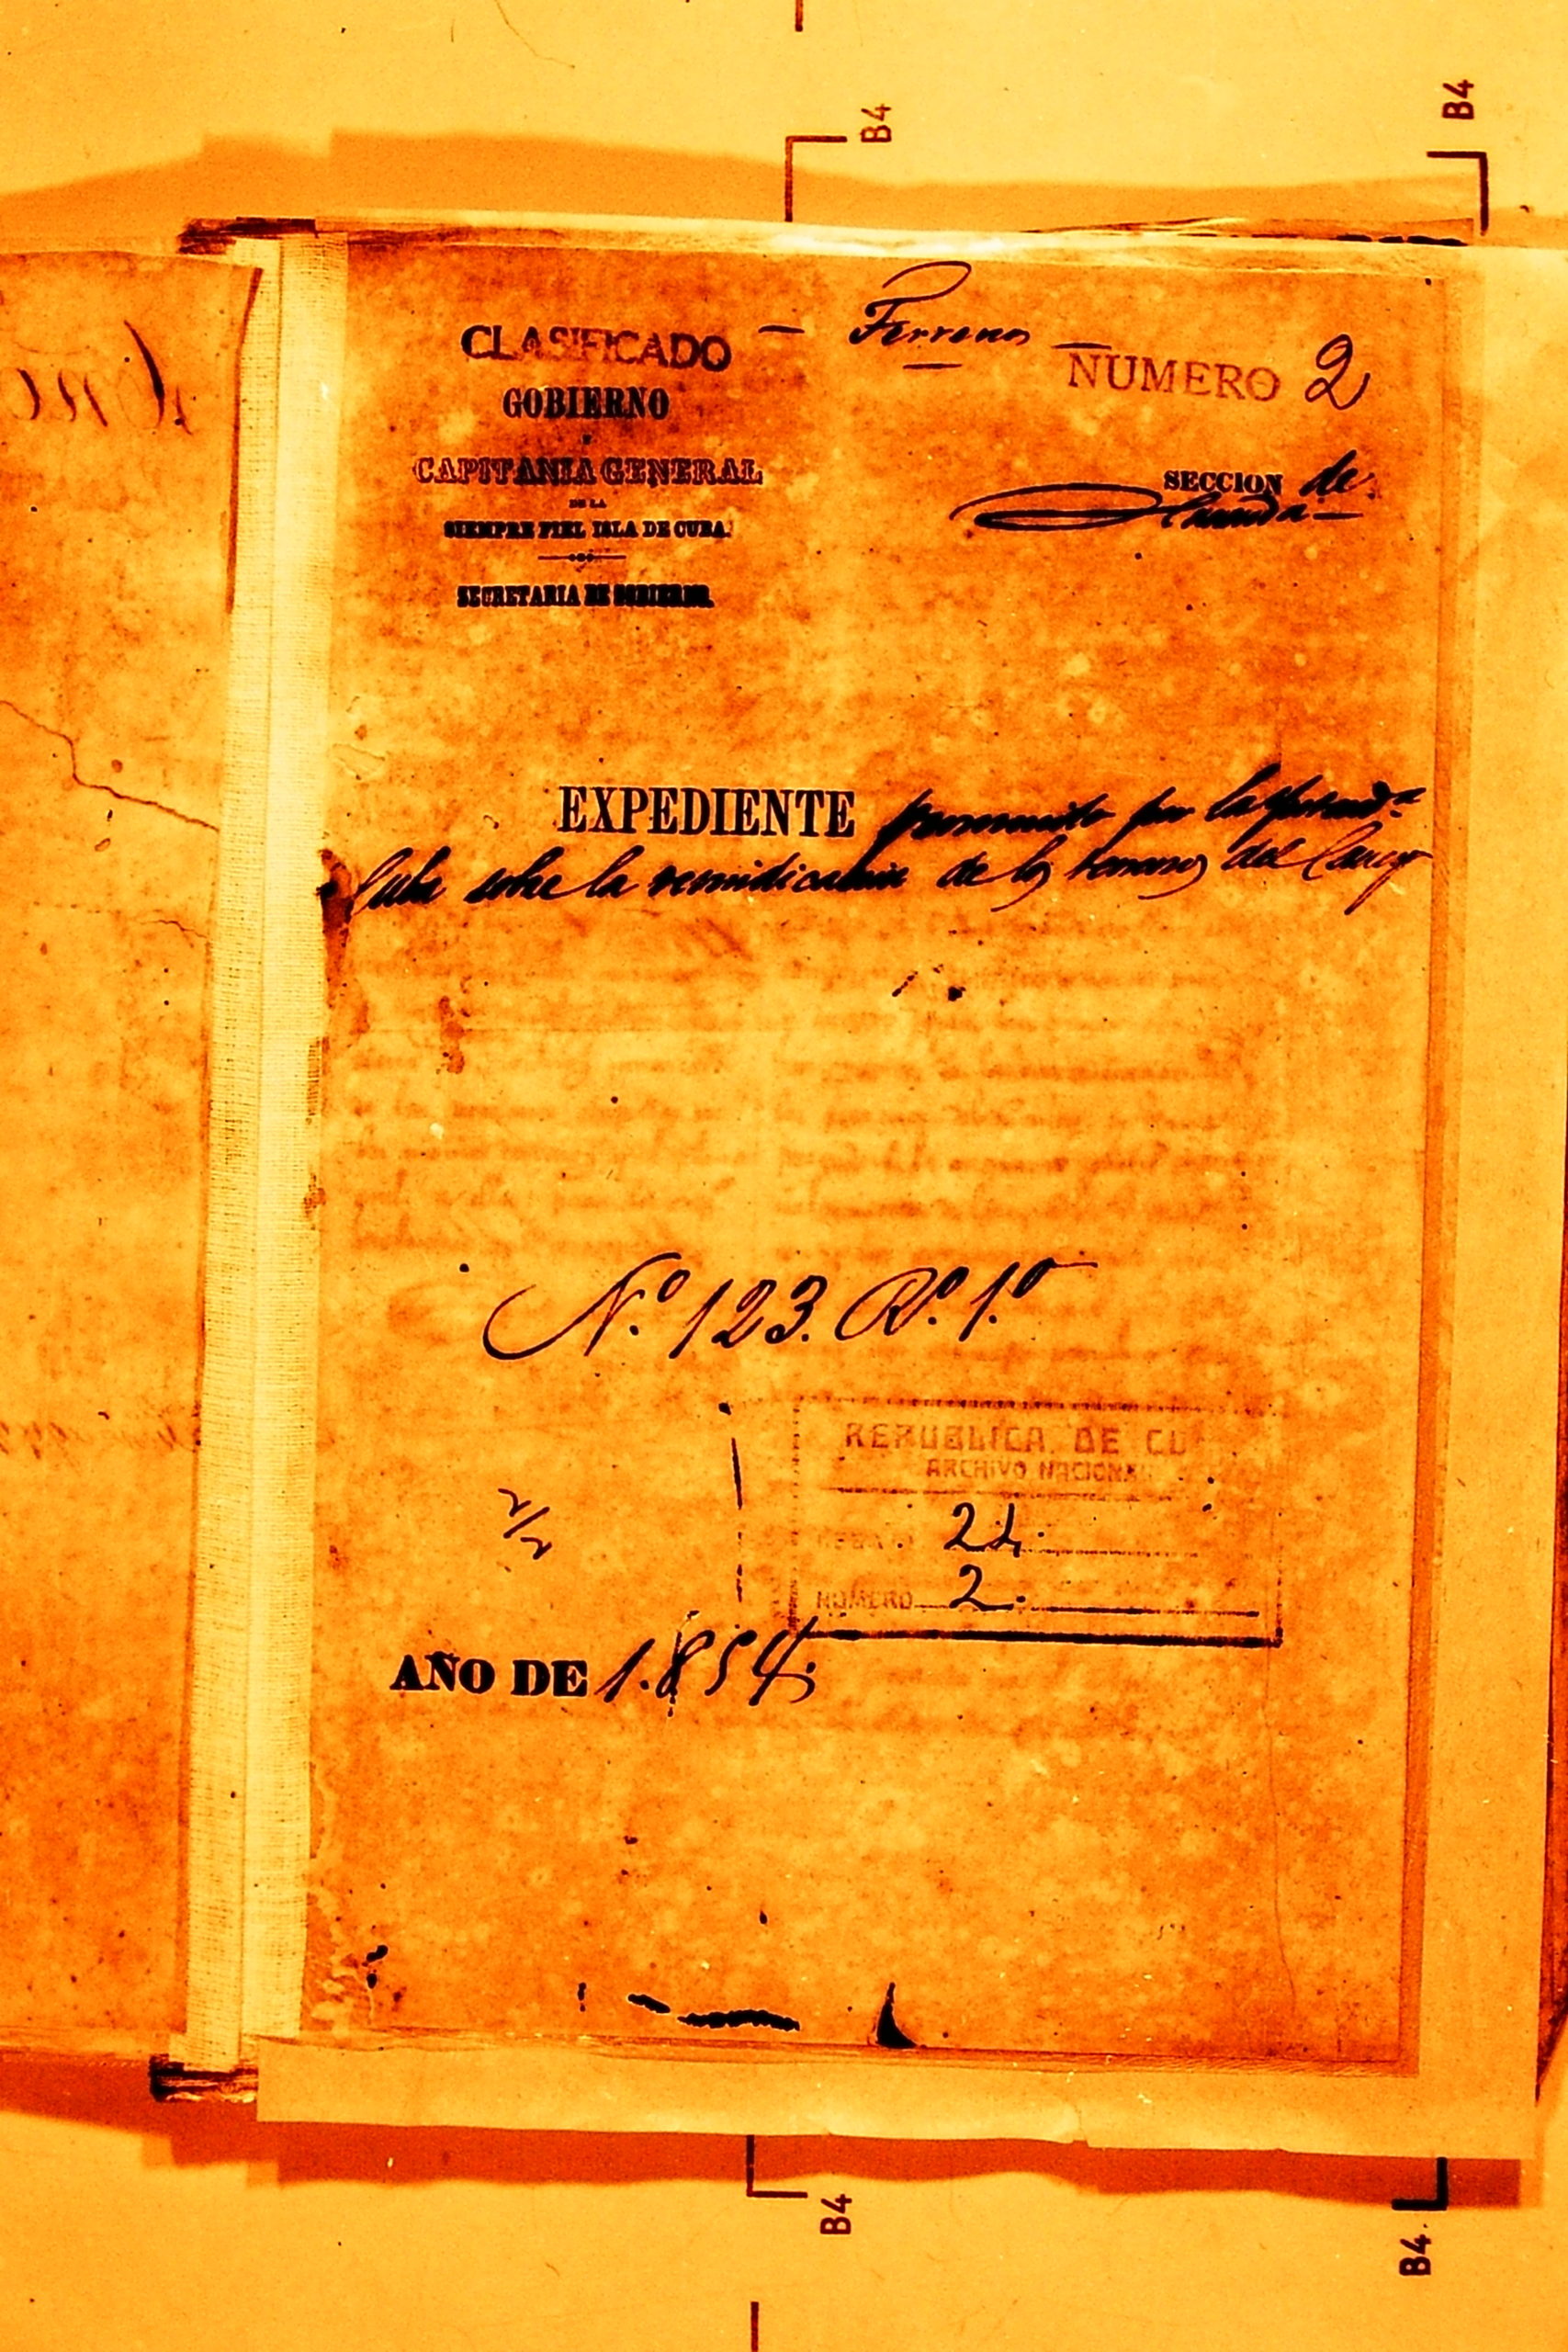 B4
B4
CLASIFICADO
— Terrenos —
NUMERO 2
GOBIERNO
Y
CAPITANIA GENERAL
DE LA
SIEMPRE FIEL ISLA DE CUBA.
SECRETARIA DE GOBIERNO.
SECCION de
EXPEDIENTE promovido por la
Cuba sobre la reivindicacion de los terrenos del
N.º 123. R.º 1.º
REPUBLICA DE CU
ARCHIVO NACIONAL
2/2
NUMERO 2.
AÑO DE 1.854
B4
B4